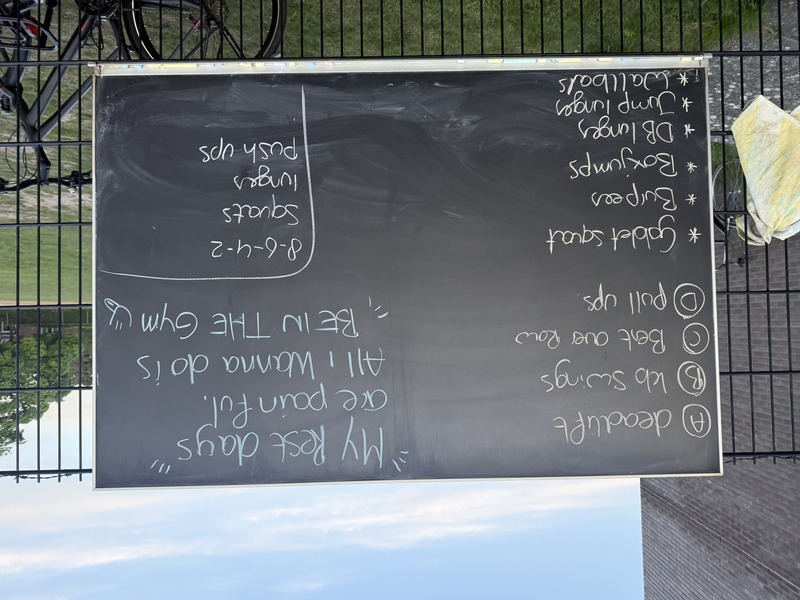 A deadlift
B kb swings
C Bent over Row
D pull ups.
* Goblet squat
* Burpees
* Boxjumps
* DB lunges
* Jump lunges
* Wallballs
"My Rest days
are painful.
All i Wanna do is
BE IN THE Gym"
8-6-4-2
squats
lunges
push ups